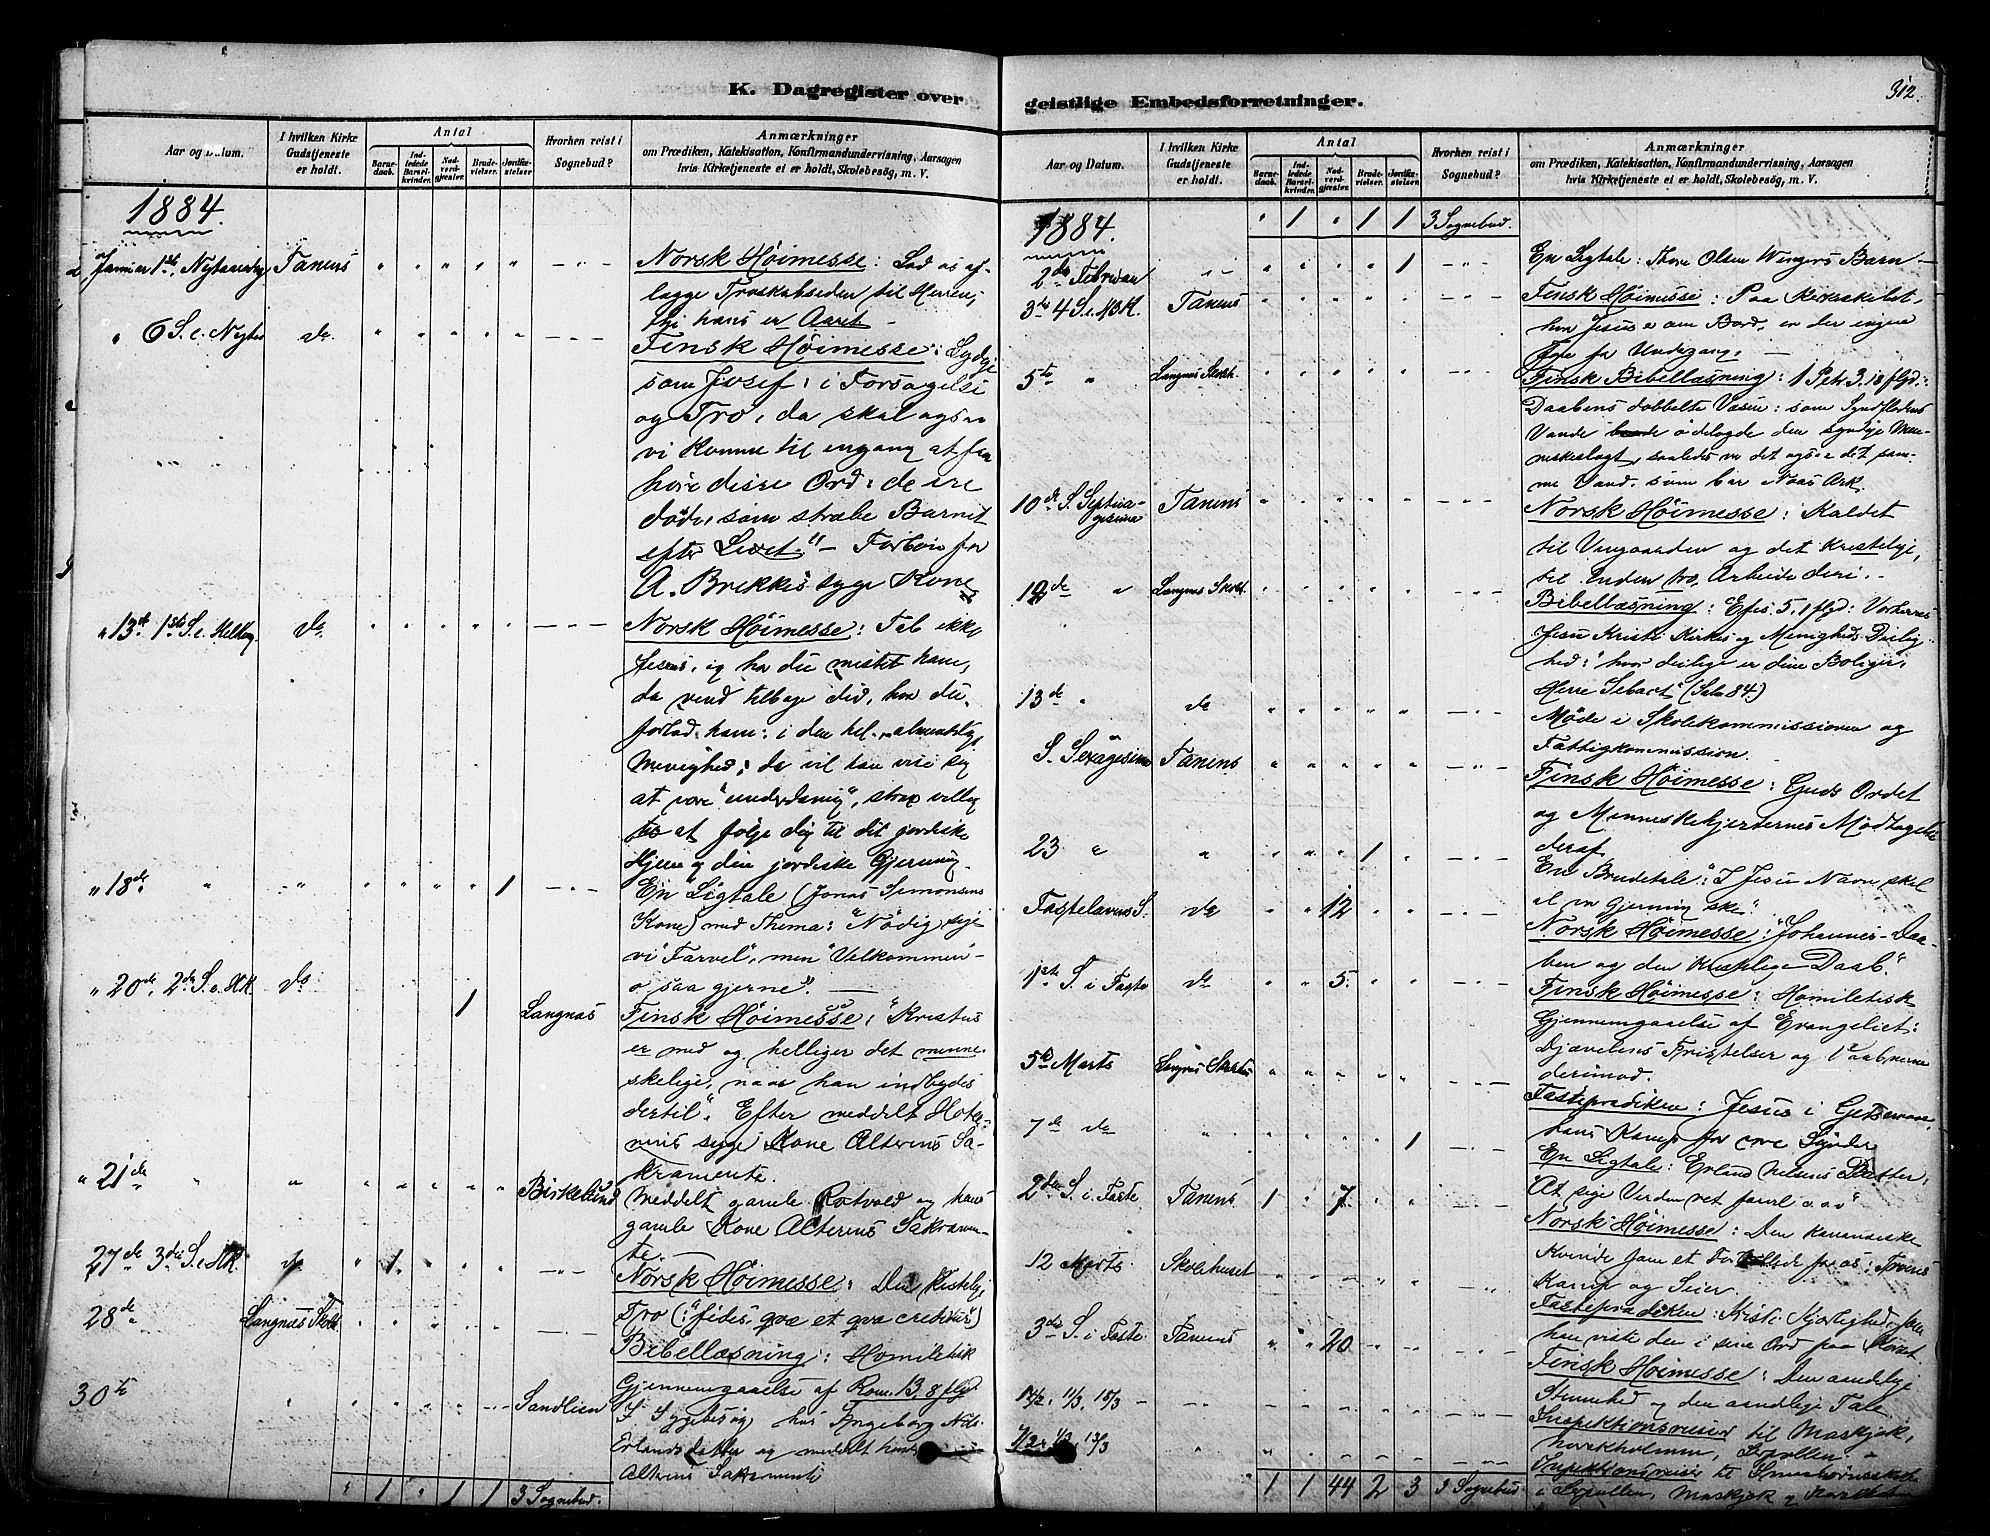 K. Dagregister over
Aar og Datum.
I hvilken Kirke Gudstjeneste er holdt.
Antal
Barnedaab.
Indledede Barselkvinder.
Nadverdgjester.
Brudevielser.
Jordfæstelser.
Hvorhen reist i Sognebud?
Anmærkninger
om Prædiken, Katekisation, Konfirmandundervisning, Aarsagen
hvis Kirketjeneste ei er holdt, Skolebesøg, m. V.
1884.
Januar 1st, Nytaarsdag Tanens
Norsk Høimesse: Lad os af-
lægge Troskabseden til Herren,
thi hans er Aaret
6 S. e. Nytaar do
Finsk Høimesse: Lydige
som Josef: i Forsagelse
og Tro, da skal ogsaa
vi komme til engang at faa
høre disse Ord: de ere
døde, som stræbe Barnet
efter Livet." – Forbøn for
A. Brekkes syge Kone
13de 1ste S. e. Helligtr. do
Norsk Høimesse: Tab ikke
Jesus, og har du mistet ham,
da vend tilbage did, hvor du
forlod ham: i den hel. almindelige
Menighed; da vil han vise sig
at være "underdanig", strax villig
til at følge dig til dit jordiske
Hjem og din jordiske Gjerning.
18de 1
En Ligtale (Jonas Simonsens
Kone) med Thema: "Nødig sige
vi Farvel", men "Velkommen"
o, saa gjerne".
20de, 2den S. e. H.K. do 1 Langnæs
Finsk Høimesse: "Kristus
er med og helliger det menne-
skelige, naar han indbydes
dertil". Efter meddelt
syge Kone Alterens Sa-
kramente.
21de Birkelund
Meddelt gamle Rotvold og hans
gamle Kone Alterens Sakramen-
te.
27de 3die S. e. H.K. do 1
Norsk Høimesse: Den kristelige
Tro (: "fides, qvæ et qva creditur")
28de Langnæs Skoleh.
Bibellæsning: Homiletisk
Gjennemgaaelse af Rom. 13, 8 flgd.
30te Sandlien
I Sygebesøg hos Ingeborg
Erlandsdatter og meddelt hende
Alterens Sakramente
1 1 1 3 Sognebud.
geistlige Embedsforretninger.
312.
Aar og Datum.
I hvilken Kirke Gudstjeneste er holdt.
Antal
Barnedaab.
Indledede Barselkvinder.
Nadverdgjester.
Brudevielser.
Jordfæstelser.
Hvorhen reist i Sognebud?
Anmærkninger
om Prædiken, Katekisation, Konfirmandundervisning, Aarsagen
hvis Kirketjeneste ei er holdt, Skolebesøg, m. V.
1884. 1 1 1 3 Sognebud.
2den Februar 1
En Ligtale: Thore Olsen Wingers Barn
3die 4 S. e. H.K. Tanens
Finsk Høimesse: Paa Kirkeskibet
hvor Jesus er om Bord, er der ingen
Fare for Undergang.
5te Langnæs Skoleh.
Finsk Bibellæsning: 1 Petr. 3. 18 flgd.:
Daabens dobbelte Væsen: som Syndflodens
Vande ødelagde den syndige Men-
neskeslægt, saaledes var det ogsaa det sam-
me Vand, som bar Noas Ark.
10de S. Septua-
gesima Tanens
Norsk Høimesse: Kaldet
til Vingaarden og det kristelige,
til Enden tro, Arbeide deri.
12de Langnæs Skoleh.
Bibellæsning: Efes. 5, 1 flgd: Vorherres
Jesu Kristi Kirkes og Menigheds Deilig-
hed: "hvor deilige er dine Boliger,
Herre Sebaot" (Salm 84.)
13de do
Møde i Skolekommissionen og
Fattigkommission.
S. Sexagesima Tanens
Finsk Høimesse: Guds Ordet
og Menneskehjerternes Modtagelse
deraf
23 1
En Brudetale: "I Jesu Navn skal
al vor Gjerning ske".
Fastelavens S. do 12
Norsk Høimesse: "Johannes-Daa-
ben og den kristelige Daab."
1ste S. i Faste do 5
Finsk Høimesse: Homiletisk
Gjennemgaaelse af Evangeliet:
Djævelens Fristelser og Vaabnene
derimod.
5te Marts Langnæs Skolehus
Fasteprædiken: Jesus i Getsemane,
hans Kamp for vore Synder
7de do 1
En Ligtale: Erland Nilsens Datter:
"At sige Verden ret farvel o.s.v."
2den S. i Faste Tanens 1 7
Norsk Høimesse: Den kananæiske
Kvinde som et Forbillede for os: Troens
Kamp og Seier
12 Marts Skolehuset
Fasteprædiken: Kristi Kjærlighed, som
han viste den i sine Ord paa Korset
3die S. i Faste Tanens 20
Finsk Høimesse: Den aandelige
Stumhed og den aandelige Tale
14/2, 11/3, 15/3
Inspektionsreiser til Maskjok,
Norskholmen, Leirpollen
Inspektionsreiser til
i Leirpollen, Maskjok og
1 1 44 2 3 3 Sognebud